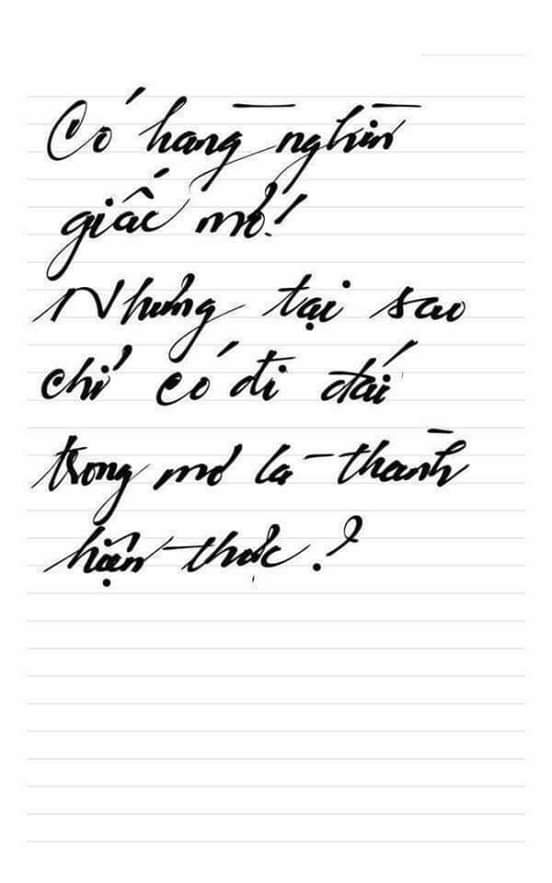 Có hàng nghìn
giấc mơ!
Nhưng tại sao
chỉ có đi đái
trong mơ là thành
hiện thực?